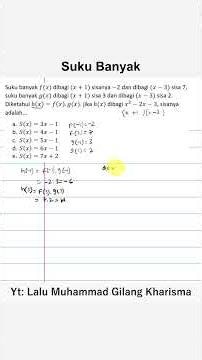 Suku Banyak
Suku banyak f(x) dibagi (x + 1) sisanya −2 dan dibagi (x − 3) sisa 7,
suku banyak g(x) dibagi (x + 1) sisa 3 dan dibagi (x − 3) sisa 2.
Diketahui h(x) = f(x).g(x). Jika h(x) dibagi x² − 2x − 3, sisanya
adalah...
a. S(x) = 3x − 1
b. S(x) = 4x − 1
c. S(x) = 5x − 1
d. S(x) = 6x − 1
e. S(x) = 7x + 2
f(-1) = -2
f(3) = 7
g(-1) = 3
g(3) = 2
h(-1) = f(-1).g(-1)
= -2.3 = -6
= 7.2 = 14
Yt: Lalu Muhammad Gilang Kharisma